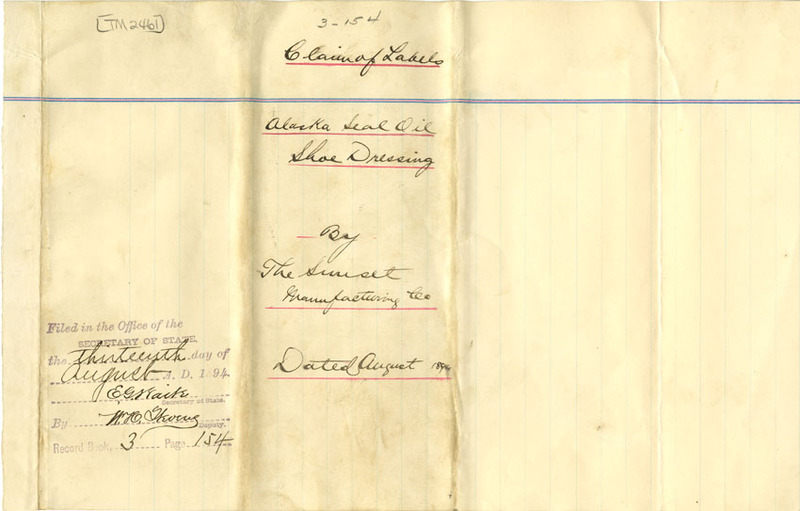 [TM 2461]
3-154
Claim of Labels
Alaska Seal Oil
Shoe Dressing
By
The Sunset
Manufacturing Co
Dated August 1894
Filed in the Office of the
SECRETARY OF STATE,
the thirteenth day of
August A. D. 1894
E G Waite
Secretary of State.
By W. H.
Deputy.
Record Book, 3 Page 154